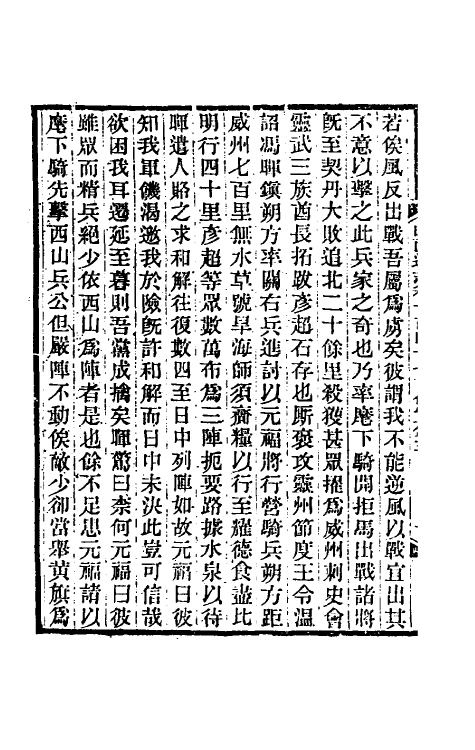 若俟風反出戰吾屬爲虜矣彼謂我不能逆風以戰宜出其
不意以擊之此兵家之奇也乃率麾下騎開拒馬出戰諸將
旣至契丹大敗追北二十餘里殺獲甚眾擢爲威州刺史會
靈武三族酋長拓跋彥超石存也厮襃攻靈州節度王令温
詔馮暉鎭朔方率關右兵進討以元福將行營騎兵朔方距
威州七百里無水草號旱海師須齎糧以行至耀德食盡比
明行四十里彥超等眾數萬布爲三陣扼要路據水泉以待
暉遣人賂之求和解往復數四至日中列陣如故元福曰彼
知我軍饑渴邀我於險旣許和解而日中未決此豈可信哉
欲困我耳遷延至暮則吾黨成擒矣暉驚曰柰何元福曰彼
雖眾而精兵絕少依西山爲陣者是也餘不足患元福請以
麾下騎先擊西山兵公但嚴陣不動俟敵少卻當舉黄旗爲